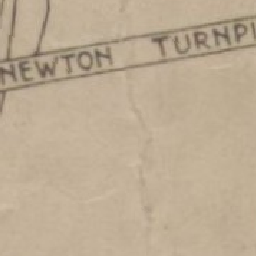 NEWTON TURNPI